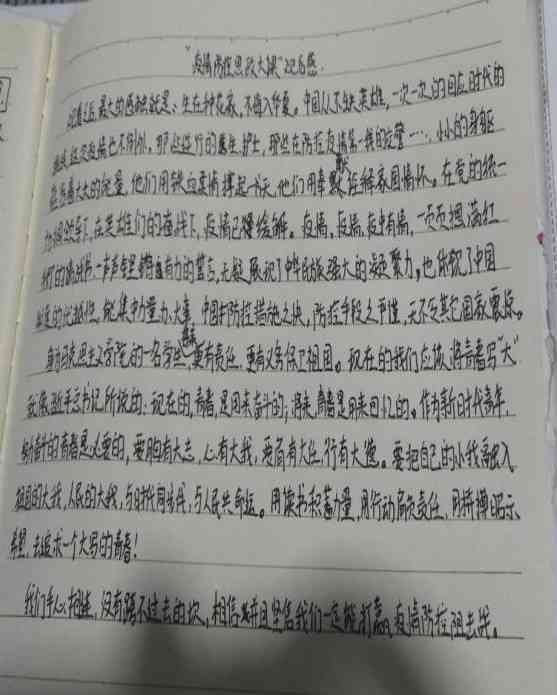 "疫情防控思政大课"观后感
观看之后,最大的感触就是:生在种花家,不悔入华夏。中国从不缺英雄,一次一次的回应时代的
挑战,这次疫情也不例外。那些逆行的医生、护士,那些在防控疫情第一线的交警……,小小的身躯
蕴藏着大大的能量,他们用铁血柔情撑起一片天,他们用奉献诠释家国情怀。在党的统一
领导下,在英雄们的奋战下,疫情已慢慢缓解。疫情,疫情,疫中有情,一页页摁满红
手印的请战书,一声声坚韧有力的誓言,无疑展现了中华民族强大的凝聚力,也体现了中国
制度的优越性,能集中力量办大事,中国的防控措施之快,防控手段之严谨,无不令其它国家震惊。
身为马克思主义学院的一名学生,更有责任,更有义务保卫祖国。现在的我们应该将青春写"大"
就像习近平总书记所说的:现在的,青春,是用来奋斗的;将来,青春是用来回忆的。作为新时代青年,
奋斗的青春是必要的,要胸有大志,心有大我,肩有大任,行有大德。要把自己的小我融入
祖国的大我,人民的大我,与时代同步伐,与人民共命运。用读书积蓄力量,用行动肩负责任,用拼搏昭示
希望,去追求一个大写的青春!
我们手心相连,没有跨不过去的坎,相信并且坚信我们一定能打赢疫情防控阻击战。